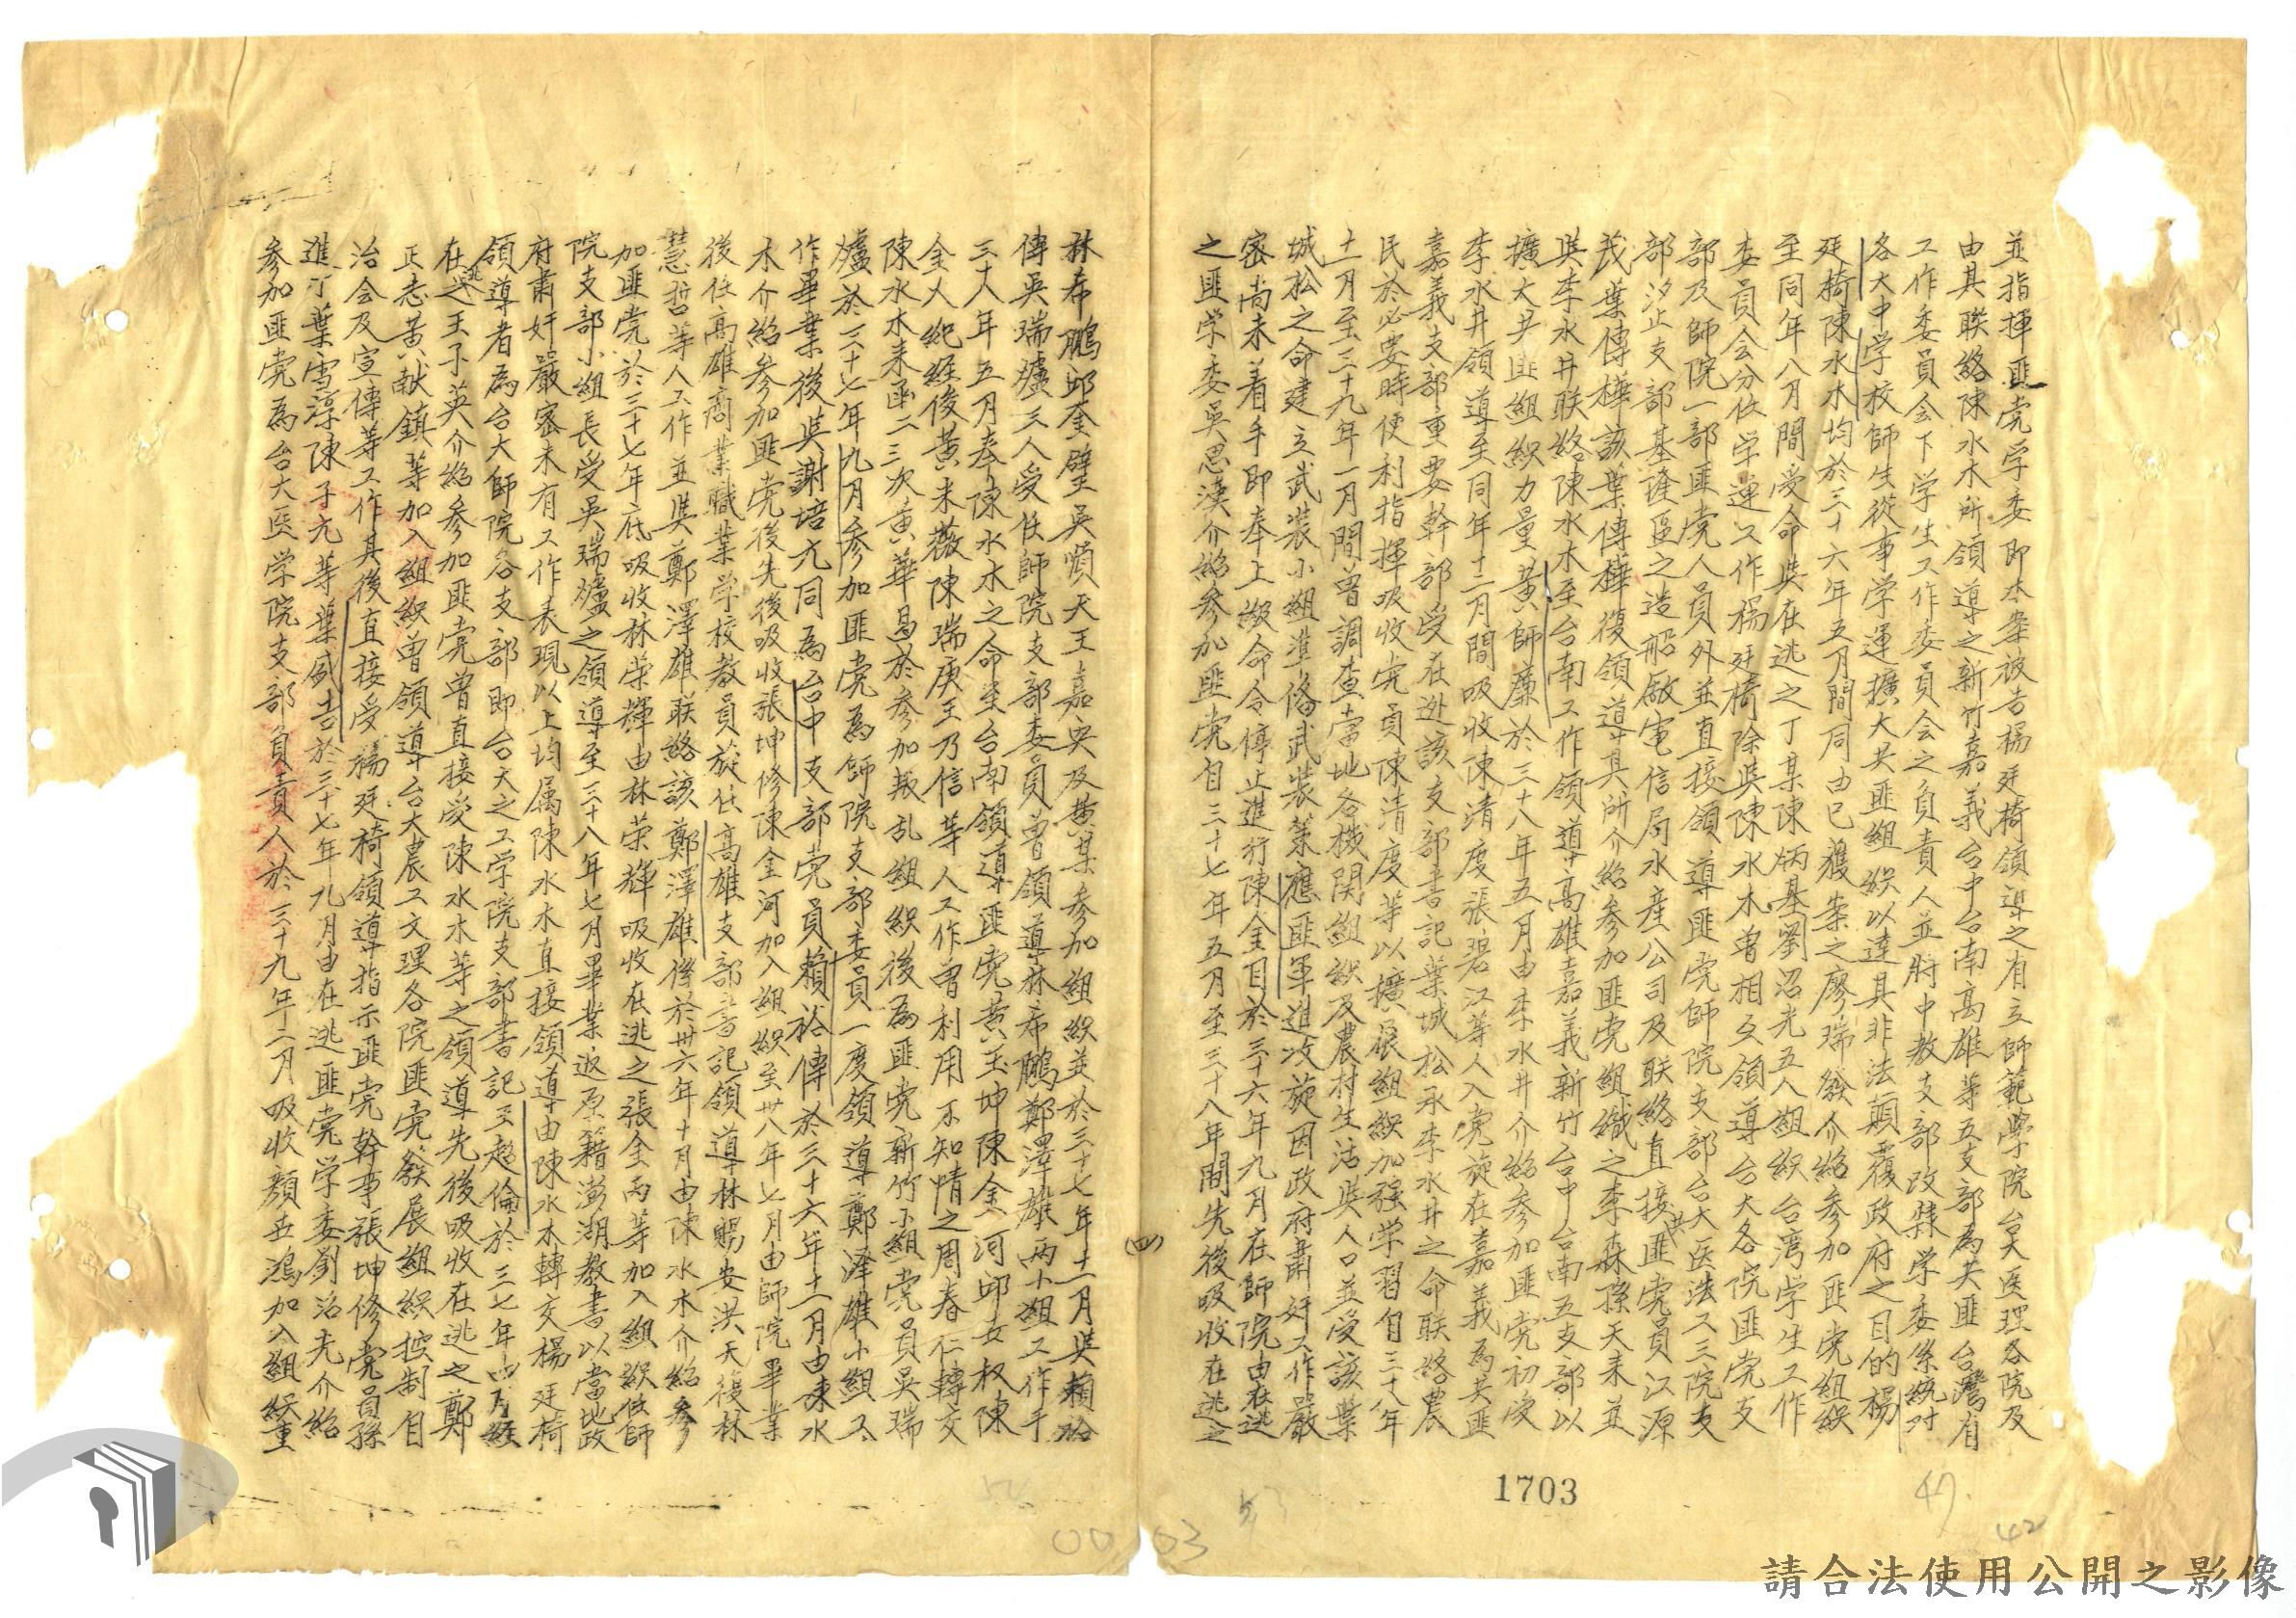 並指揮匪党学委即本案被告楊廷椅領導之省立師範學院台大医理各院及
由其联絡陳水木所領導之新竹嘉義台中台南高雄等五支部為共匪台灣省
工作委員会下学生工作委員会之負責人並将中教支部改隸学委系統对
各大中学校師生從事学運擴大共匪組織以達其非法顛覆政府之目的楊
廷椅陳水木均於三十六年五月間同由已獲案之廖瑞發介紹参加匪党組織
至同年八月間受命與在逃之丁某陳炳基劉沼光五人組織台湾学生工作
委員会分任学運工作楊廷椅除與陳水木曽相互領導台大各院匪党支
部及師院一部匪党人員外並直接領導匪党師院支部台大医法工三院支
部汐止支部基隆區之造船廠電信局水產公司及联絡直接匪党員江源
茂葉傳樺該葉傳樺復領導其所介紹参加匪党組織之李森孫天来並
與李水井联絡陳水木至台南工作領導高雄嘉義新竹台中台南五支部以
擴大共匪組織力量黄師廉於三十八年五月由李水井介紹参加匪党初受
李水井領導至同年十二月間吸收陳清度張碧江等人入党旋在嘉義為共匪
嘉義支部重要幹部受在逃該支部書記葉城松承李水井之命联絡農
民於必要時便利指揮吸收党員陳清度等以擴展組織加强学習自三十八年
十一月至三十九年一月間曽調查当地各機関組織及農村生活與人口並受該葉
城松之命建立武裝小組準俻武裝策應匪軍進攻旋因政府肅奸工作嚴
密尚未着手即奉上級命令停止進行陳全目於三十六年九月在師院由在逃
之匪学委吳思漢介紹参加匪党自三十七年五月至三十八年間先後吸收在逃之
(四)
林希鵬邱奎壁吳順天王嘉央及黄某参加組織並於三十七年十一月與賴裕
傳吳瑞爐三人受任師院支部委員曽領導林希鵬鄭澤雄兩小組工作于
三十八年五月奉陳水木之命至台南領導匪党黄玉坤陳金河邱女权陳
金火紀經俊黄来薇陳瑞庚王乃信等人工作曽利用不知情之周春仁轉交
陳水木来函二三次黄華昌於参加叛乱組織後為匪党新竹小組党員吳瑞
爐於三十七年九月参加匪党為師院支部委員一度領導鄭澤雄小組工
作畢業後與謝培元同為台中支部党員賴裕傳於三十六年十一月由陳水
木介紹参加匪党後先後吸收張坤修陳金河加入組織至卅八年七月由師院畢業
後任高雄商業職業学校教員旋任高雄支部書記領導林賜安洪天復林
慧哲等人工作並與鄭澤雄联絡該鄭澤雄係於卅六年十月由陳水木介紹参
加匪党於三十七年底吸收林荣輝由林荣輝吸收在逃之張金丙等加入組織任師
院支部小組長受吳瑞爐之領導至三十八年七月畢業返原籍澎湖教書以當地政
府肅奸嚴密未有工作表現以上均属陳水木直接領導由陳水木轉交楊廷椅
領導者為台大師院各支部即台大之工学院支部書記王超倫於三七年四月經
在逃之王子英介紹参加匪党曽直接受陳水木等之領導先後吸收在逃之鄭
正志黄献鎮等加入組織曽領導台大農工文理各院匪党發展組織控制自
治会及宣傳等工作其後直接受楊廷椅領導指示匪党幹事張坤修党員孫
進丁葉雪淳陳子元等葉盛吉於三十七年九月由在逃匪党学委劉沼光介紹
参加匪党為台大医学院支部負責人於三十九年二月吸收顏世鴻加入組織重
1703
47.
42
53
52
00 03
請合法使用公開之影像